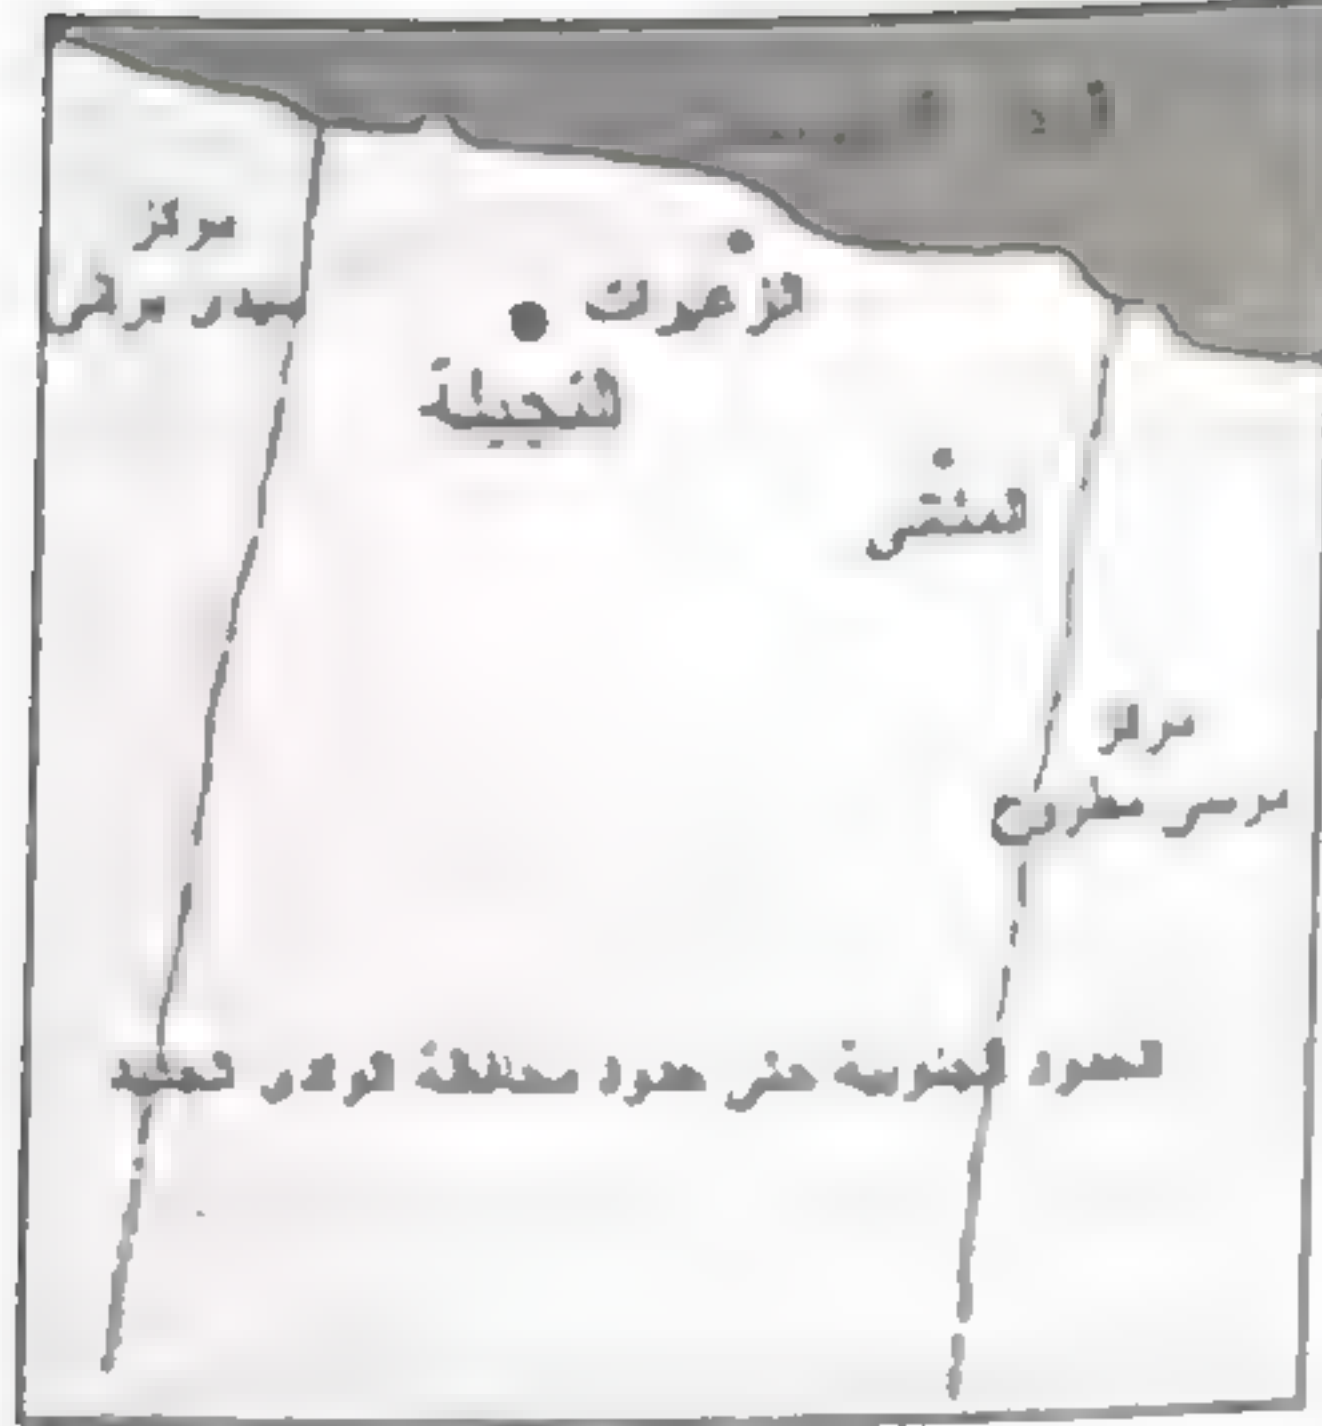 مركز
سيدى برانى
الزعيرات
النجيلة
المثنى
مركز
مرسى مطروح
الحدود الجنوبية حتى حدود محافظة الوادى الجديد